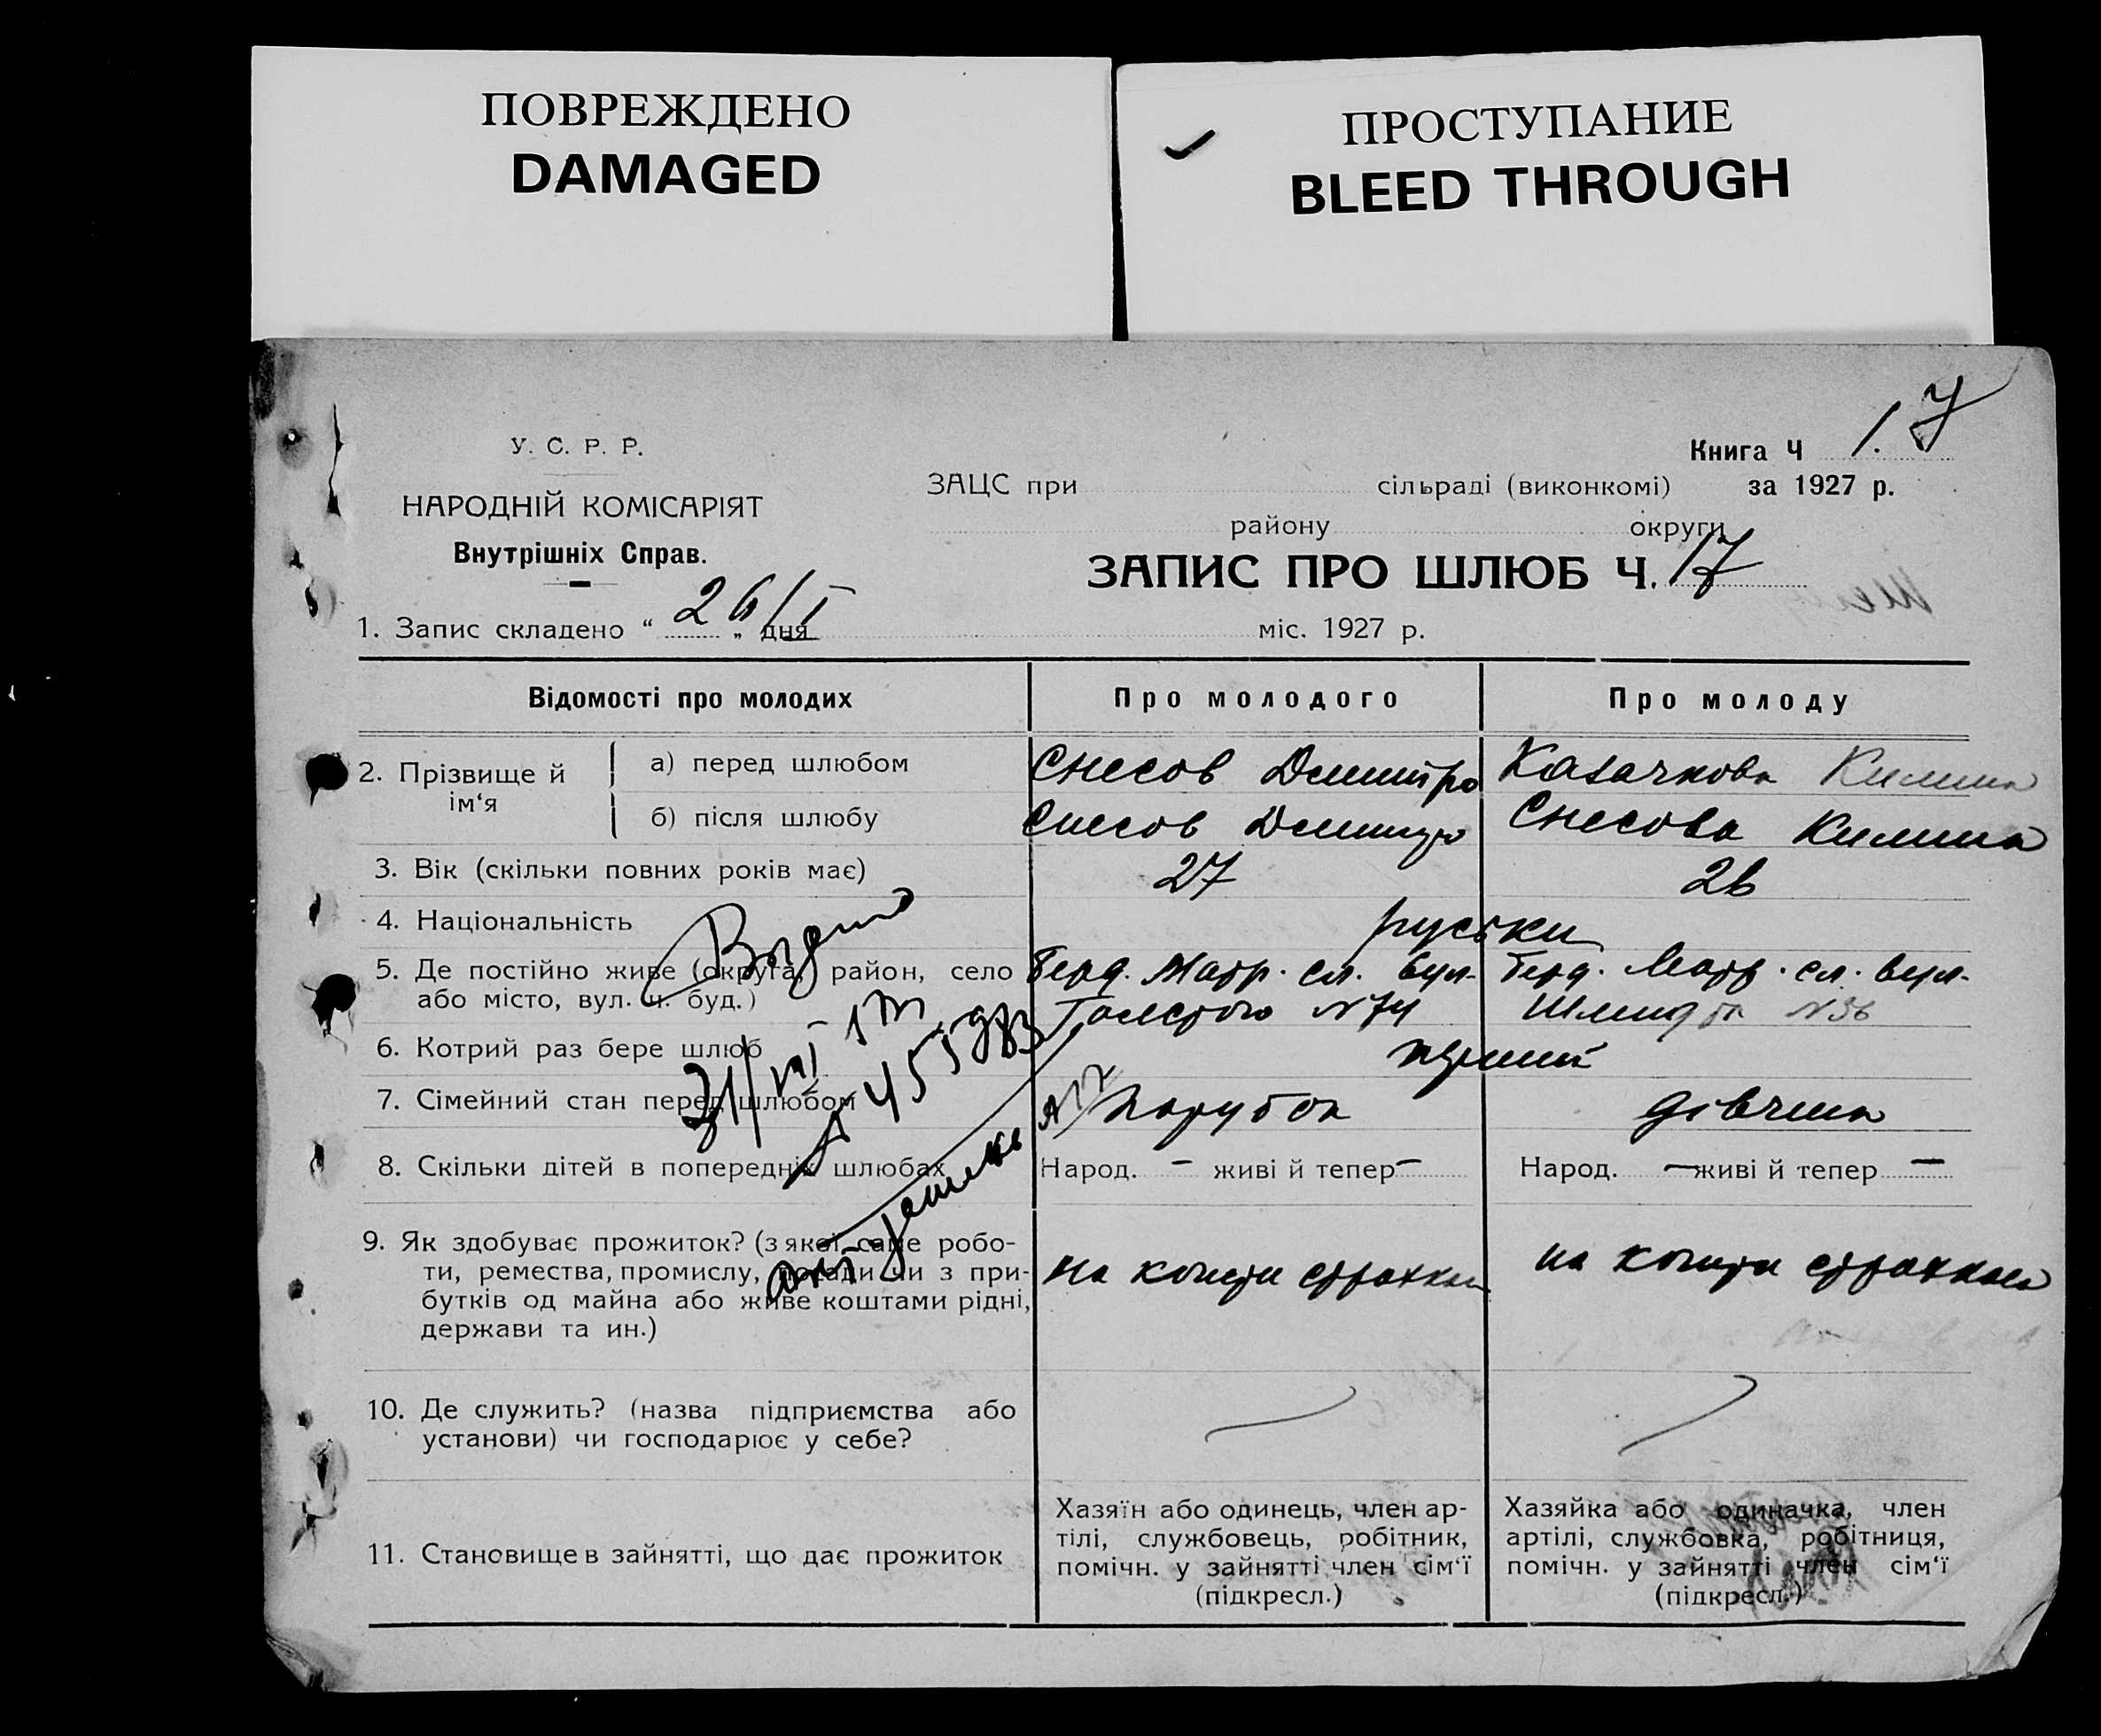 ПОВРЕЖДЕНО
DAMAGED
ПРОСТУПАНИЕ
BLEED THROUGH
У. С. Р. Р.
НАРОДНІЙ КОМІСАРІЯТ
Внутрішніх Справ.
Книга Ч 1. 7
ЗАЦС при сільраді (виконкомі) за 1927 р.
району округи
ЗАПИС ПРО ШЛЮБ Ч. 17
1. Запис складено “ 26/I „ дня міс. 1927 р.
Відомості про молодих Про молодого Про молоду
2. Прізвище й ім‘я
а) перед шлюбом Снесов Дмитро Казачкова
б) після шлюбу Снесов Дмитро Снесова
3. Вік (скільки повних років має) 27 26
4. Національність руські
5. Де постійно живе (округа, район, село або місто, вул. ч. буд.)
Берд. вул.
Толстого №74
Берд. вул.
Шмидта №36
6. Котрий раз бере шлюб перший
7. Сімейний стан перед шлюбом Парубок дівчина
8. Скільки дітей в попередніх шлюбах Народ. – живі й тепер – Народ. – живі й тепер –
9. Як здобуває прожиток? (з якої саме робо-
ти, ремества, промислу, посади чи з при-
бутків од майна або живе коштами рідні,
держави та ин.)
на кошти
на кошти
10. Де служить? (назва підприємства або
установи) чи господарює у себе?
11. Становище в зайнятті, що дає прожиток
Хазяїн або одинець, член ар-
тілі, службовець, робітник,
помічн. у зайнятті член сім‘ї
(підкресл.)
Хазяйка або одиначка, член
артілі, службовка, робітниця,
помічн. у зайнятті член сім‘ї
(підкресл.)